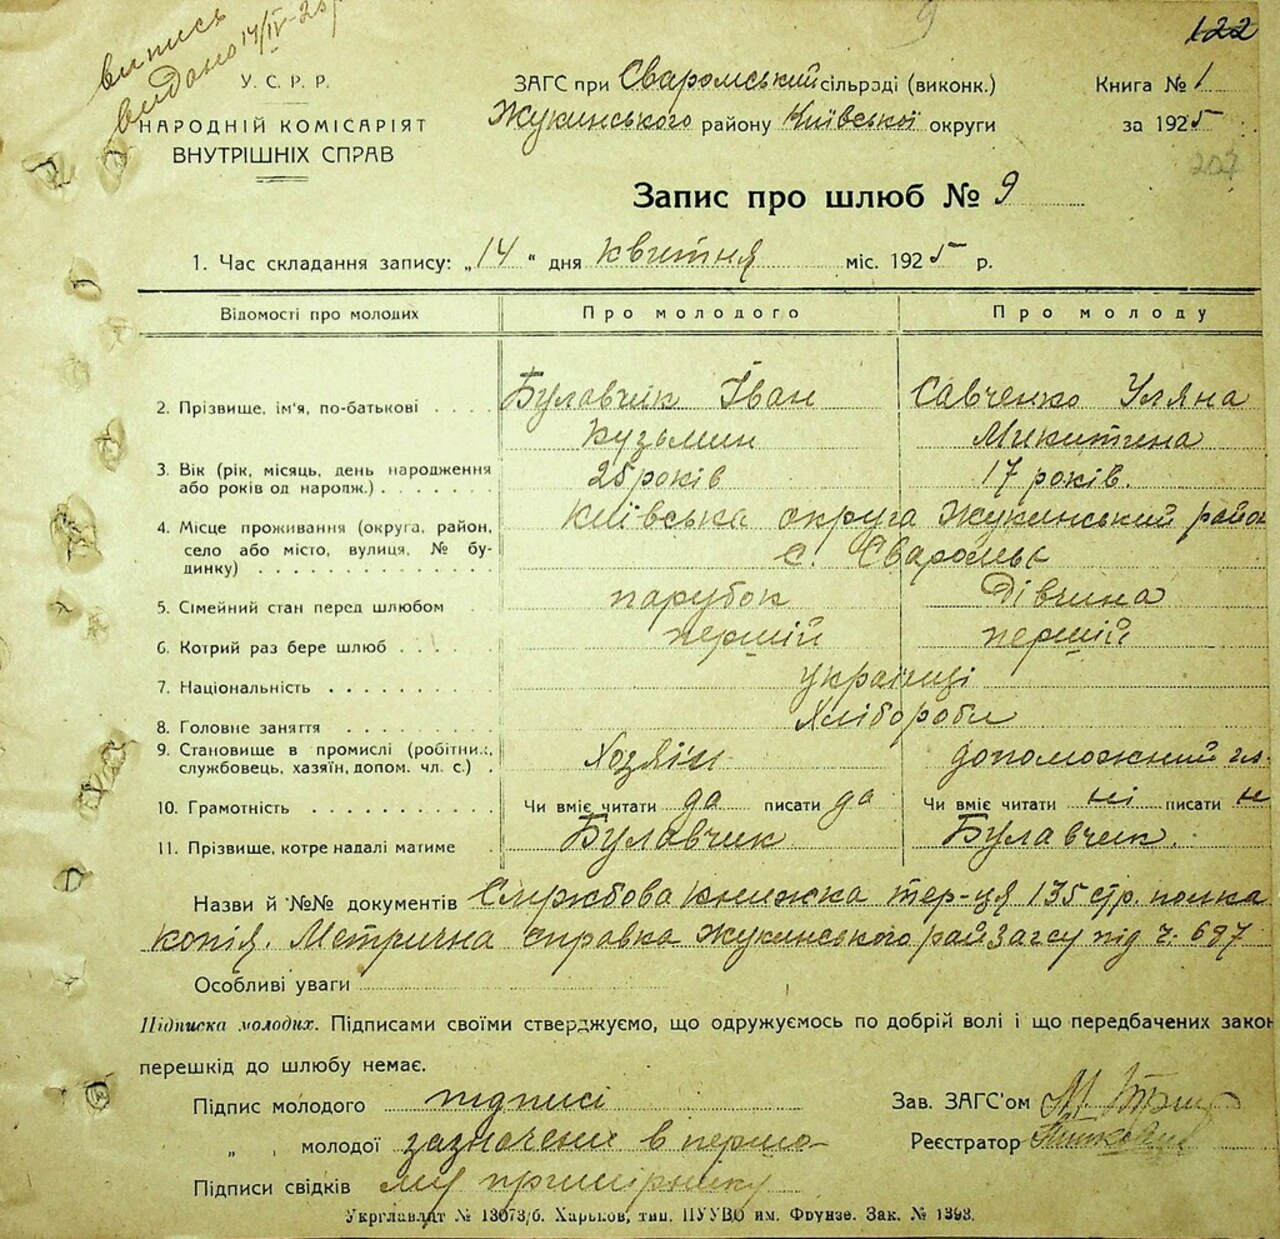 122
випись
видано 14/IV-25р
У. С. Р. Р.
НАРОДНІЙ КОМІСАРІЯТ
ВНУТРІШНІХ СПРАВ
ЗАГС при Сваромський сільраді (виконк.)
Жукинського району Київської округи
Книга № 1
за 1925
207
Запис про шлюб № 9
1. Час складання запису: „14“ дня квітня міс. 1925 р.
Відомості про молодих Про молодого Про молоду
2. Прізвище, ім'я, по-батькові . . . . Булавчик Іван Савченко Уляна
Кузьмин Микитина
3. Вік (рік, місяць, день народження
або років од народж.) . . . . . . . 25 років 17 років.
4. Місце проживання (округа, район, Київська округа Жукинський район
село або місто, вулиця, № бу-
динку) . . . . . . . . . . . . с. Сваромьє
5. Сімейний стан перед шлюбом . парубок дівчина
6. Котрий раз бере шлюб . . . . . перший перший
7. Національність . . . . . . . . . українці
8. Головне заняття . . . . . . . . . Хлібороби
9. Становище в промислі (робітник,
службовець, хазяїн, допом. чл. с.) . Хозяїн допоможний чл.
10. Грамотність . . . . . . . . . . Чи вміє читати да писати да Чи вміє читати ні писати н
11. Прізвище, котре надалі матиме Булавчик Булавчик.
Назви й №№ документів Службова книжка тер-ця 135 стр. полка
копія. Метрична справка Жукинського райЗагсу під ч. 687
Особливі уваги
Підписка молодих. Підписами своїми стверджуємо, що одружуємось по добрій волі і що передбачених закон
перешкід до шлюбу немає.
Підпис молодого підписі Зав. ЗАГС'ом М.
„ „ молодої зазначені в першо- Реєстратор
Підписи свідків му примірнику
Укрглавліт № 13073/б. Харьков, тип. ПУУВО им. Фрунзе. Зак. № 1393.